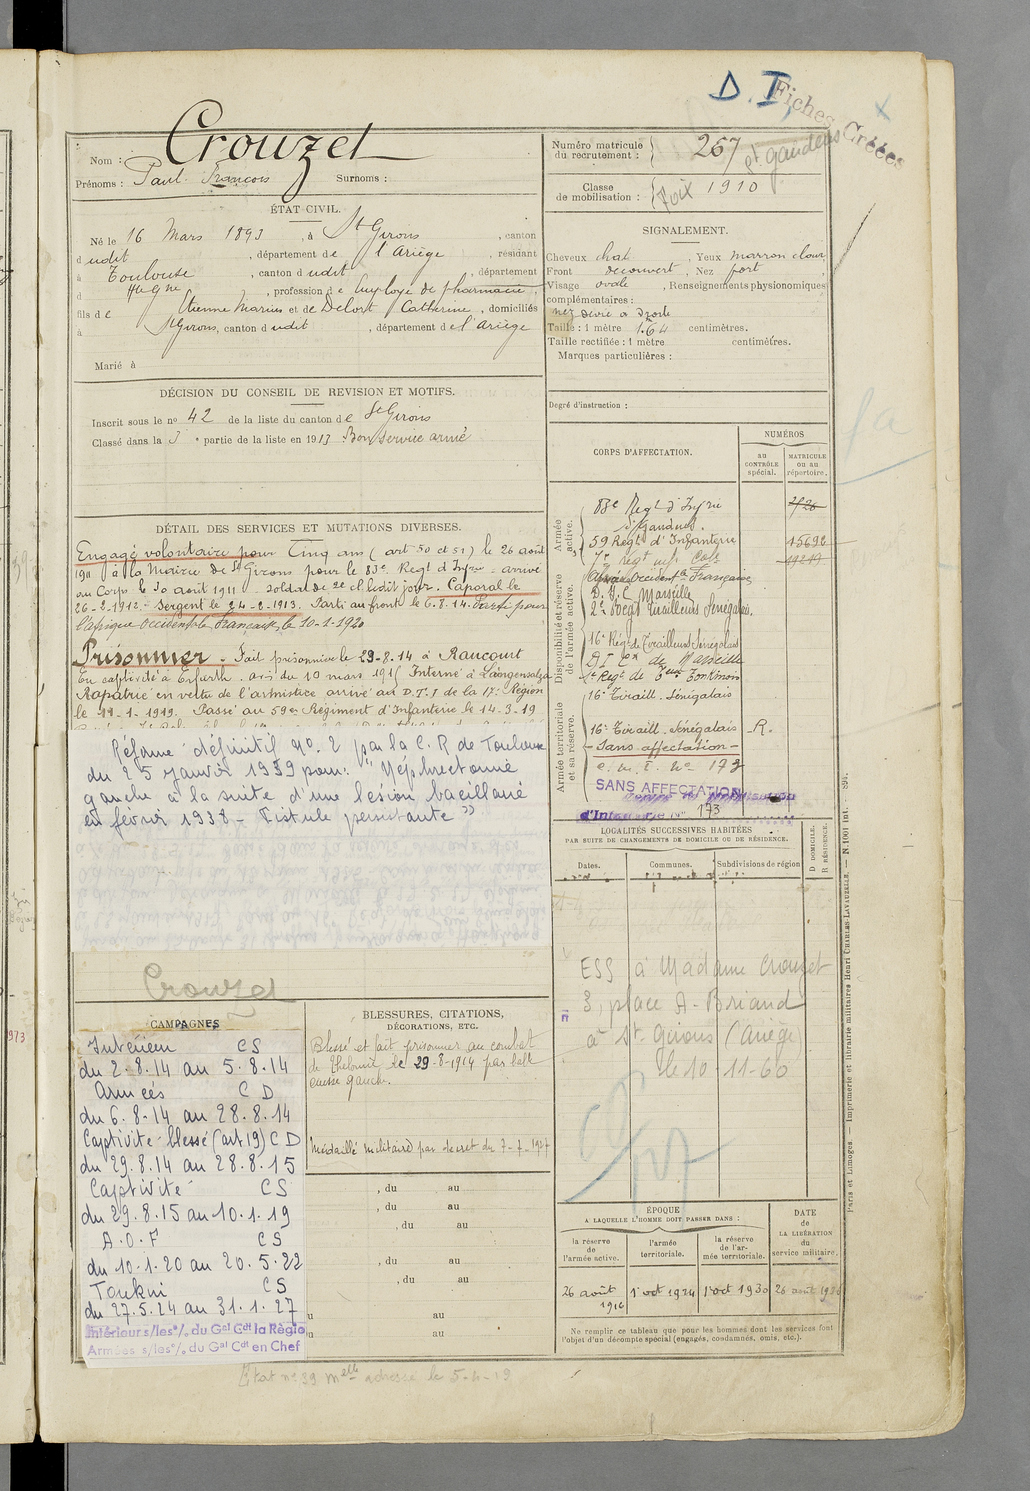 D.I.
Fiches Créées
Crouzet
Nom :
Prénoms : Paul François Surnoms :
Numéro matricule du recrutement : 267
St gaudens
Classe de mobilisation : 1910
Foix
ÉTAT CIVIL.
Né le 16 Mars 1893, à St Girons, canton
dudit, département de l'Ariège, résidant
à Toulouse, canton dudit, département
d Hte Gne, profession de Employé de pharmacie,
fils de Etienne Marius et de Delort Catherine, domiciliés
à St Girons, canton dudit, département de l'Ariège
Marié à
SIGNALEMENT.
Cheveux chat, Yeux marron clair
Front découvert, Nez fort,
Visage ovale, Renseignements physionomiques
complémentaires :
nez dévié à droite
Taille : 1 mètre 1.64 centimètres.
Taille rectifiée : 1 mètre centimètres.
Marques particulières :
Degré d'instruction :
DÉCISION DU CONSEIL DE REVISION ET MOTIFS.
Inscrit sous le no 42 de la liste du canton de St Girons
Classé dans la 3e partie de la liste en 1913 Bon service armé
DÉTAIL DES SERVICES ET MUTATIONS DIVERSES.
Engagé volontaire pour Cinq ans (art 50 et 51) le 26 août
1911 à la Mairie de St Girons pour le 83e Regt d'Infrie arrivé
au Corps le 30 août 1911 soldat de 2e cl ledit jour. Caporal le
26-2-1912. Sergent le 24-2-1913. Parti au front le 6.8.14. Parti pour
l'Afrique Occidentale Française, le 10-1-1920
Prisonnier. Fait prisonnier le 29-8.14 à Raucourt
En captivité à Erfurth. avis du 10 mars 191 Interné à Langensalza
Rapatrié en vertu de l'armistice arrivé au D.T.I de la 17e Région
le 19-1-1919. Passé au 59e Régiment d'Infanterie le 14-3-19
Réformé définitif No 2 par la C. R de Toulouse
du 25 janvier 1939 pour: "Néphrectomie
gauche à la suite d'une lésion bacillaire
en février 1938 - Fistule persistante"
CORPS D'AFFECTATION.
NUMÉROS
au CONTRÔLE spécial.
MATRICULE ou au répertoire.
Armée active.
83e Regt d'Infrie
St Gaudens.
59 Regt d'Infanterie 15692
7e regt inf. Col 19219
Afrique Occidentale Française
Disponibilité et réserve de l'armée active.
D.I.C Marseille
2e Regt Tirailleurs Sénégalais.
16e Regt de Tirailleurs Sénégalais
D I Cx de Marseille
16e Tiraill. Sénégalais
Armée territoriale et sa réserve.
16e Tiraill. Sénégalais R.
- Sans affectation -
c. m. I. No 173
SANS AFFECTATION
d'Infanterie No 173
LOCALITÉS SUCCESSIVES HABITÉES
PAR SUITE DE CHANGEMENTS DE DOMICILE OU DE RÉSIDENCE.
Dates.
Communes.
Subdivisions de région
D DOMICILE. R RÉSIDENCE.
ESS à Madame Crouzet
3, place A. Briand
à St. Girons (Ariège)
le 10-11-60
Crouzet
CAMPAGNES
Intérieur CS
du 2.8.14 au 5.8.14
Armées C D
du 6.8.14 au 28.8.14
Captivité blessé (art 19) C D
du 29.8.14 au 28.8.15
Captivité CS
du 29.8.15 au 10.1.19
A.O.F CS
du 10.1.20 au 20.5.22
Tonkin CS
du 27.5.24 au 31.1.27
Intérieur s/les °/. du Gal Cdt la Région
Armées s/les °/. du Gal Cdt en Chef
BLESSURES, CITATIONS,
DÉCORATIONS, ETC.
Blessé et fait prisonnier au combat
de le 29-8-1914 par balle
cuisse gauche.
Médaillé militaire par décret du 7-7-1927
, du au
, du au
, du au
, du au
, du au
au
au
ÉPOQUE
A LAQUELLE L'HOMME DOIT PASSER DANS :
la réserve de l'armée active.
l'armée territoriale.
la réserve de l'armée territoriale.
DATE DE LA LIBÉRATION du service militaire.
26 août 1916
1er oct 1924
1er oct 1930
26 août
Ne remplir ce tableau que pour les hommes dont les services font
l'objet d'un décompte spécial (engagés, condamnés, omis, etc.).
Paris et Limoges. — Imprimerie et librairie militaires Henri CHARLES-LAVAUZELLE. — N. 1001 int.
Etat no 39 melle adressé le 5-4-19
973